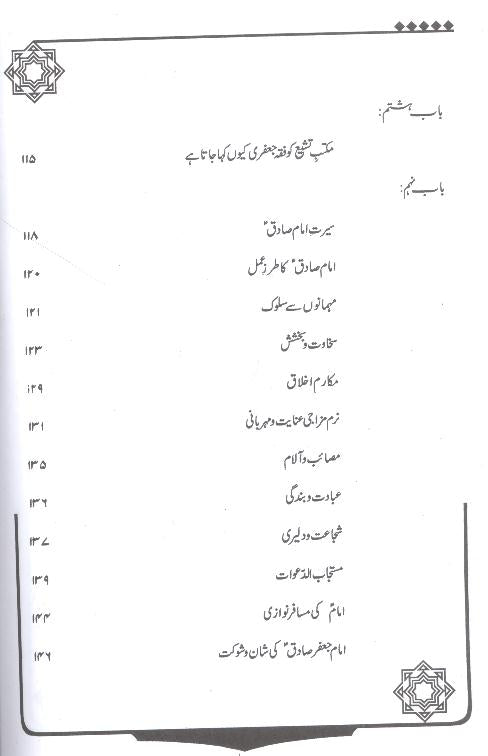 باب ہشتم:
مکتبِ تشیع کو فقہ جعفری کیوں کہا جاتا ہے ۱۱۵
باب نہم:
سیرتِ امام صادقؑ ۱۱۸
امام صادقؑ کا طرزِ عمل ۱۲۰
مہمانوں سے سلوک ۱۲۱
سخاوت و بخشش ۱۲۳
مکارم اخلاق ۱۲۹
نرم مزاجی عنایت و مہربانی ۱۳۱
مصائب و آلام ۱۳۵
عبادت و بندگی ۱۳۶
شجاعت و دلیری ۱۳۷
مستجاب الدّعوات ۱۳۹
امامؑ کی مسافر نوازی ۱۴۴
امام جعفر صادقؑ کی شان و شوکت ۱۴۶